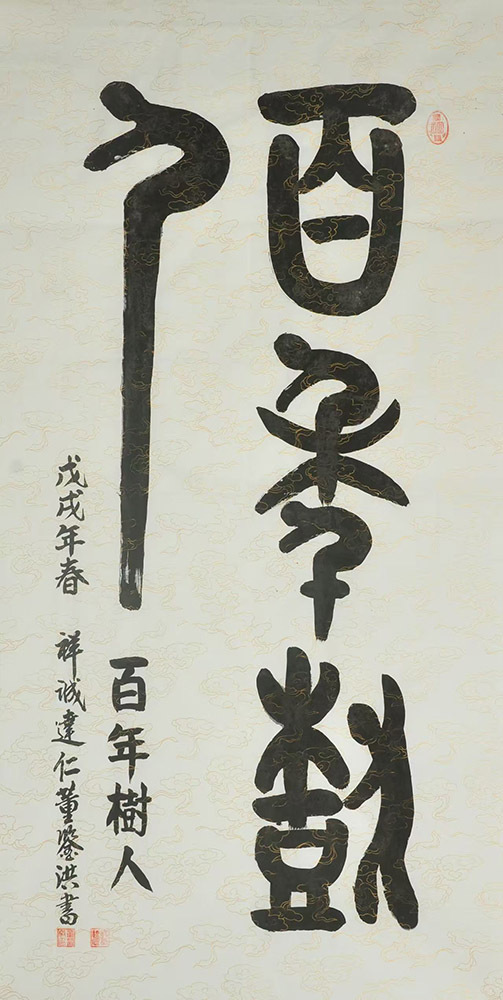 百年樹
人
百年樹人
戊戌年春 祥誠建仁董鑒洪書